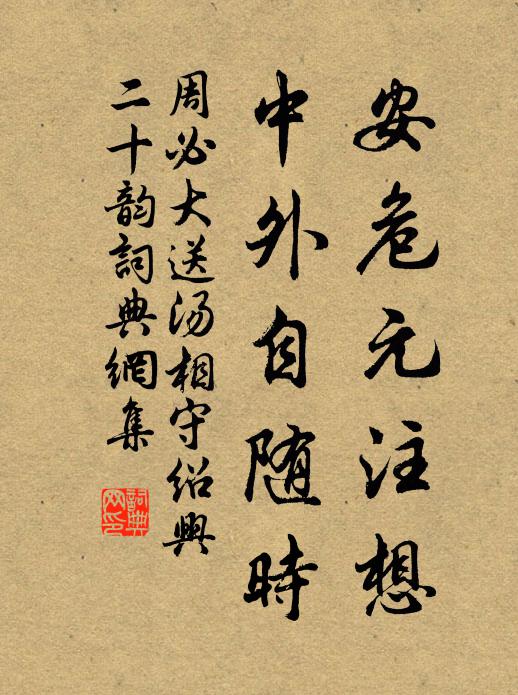 安危元注想
中外自随時
周必大送汤相守绍興
二十韵詞典網集
詞典
网印